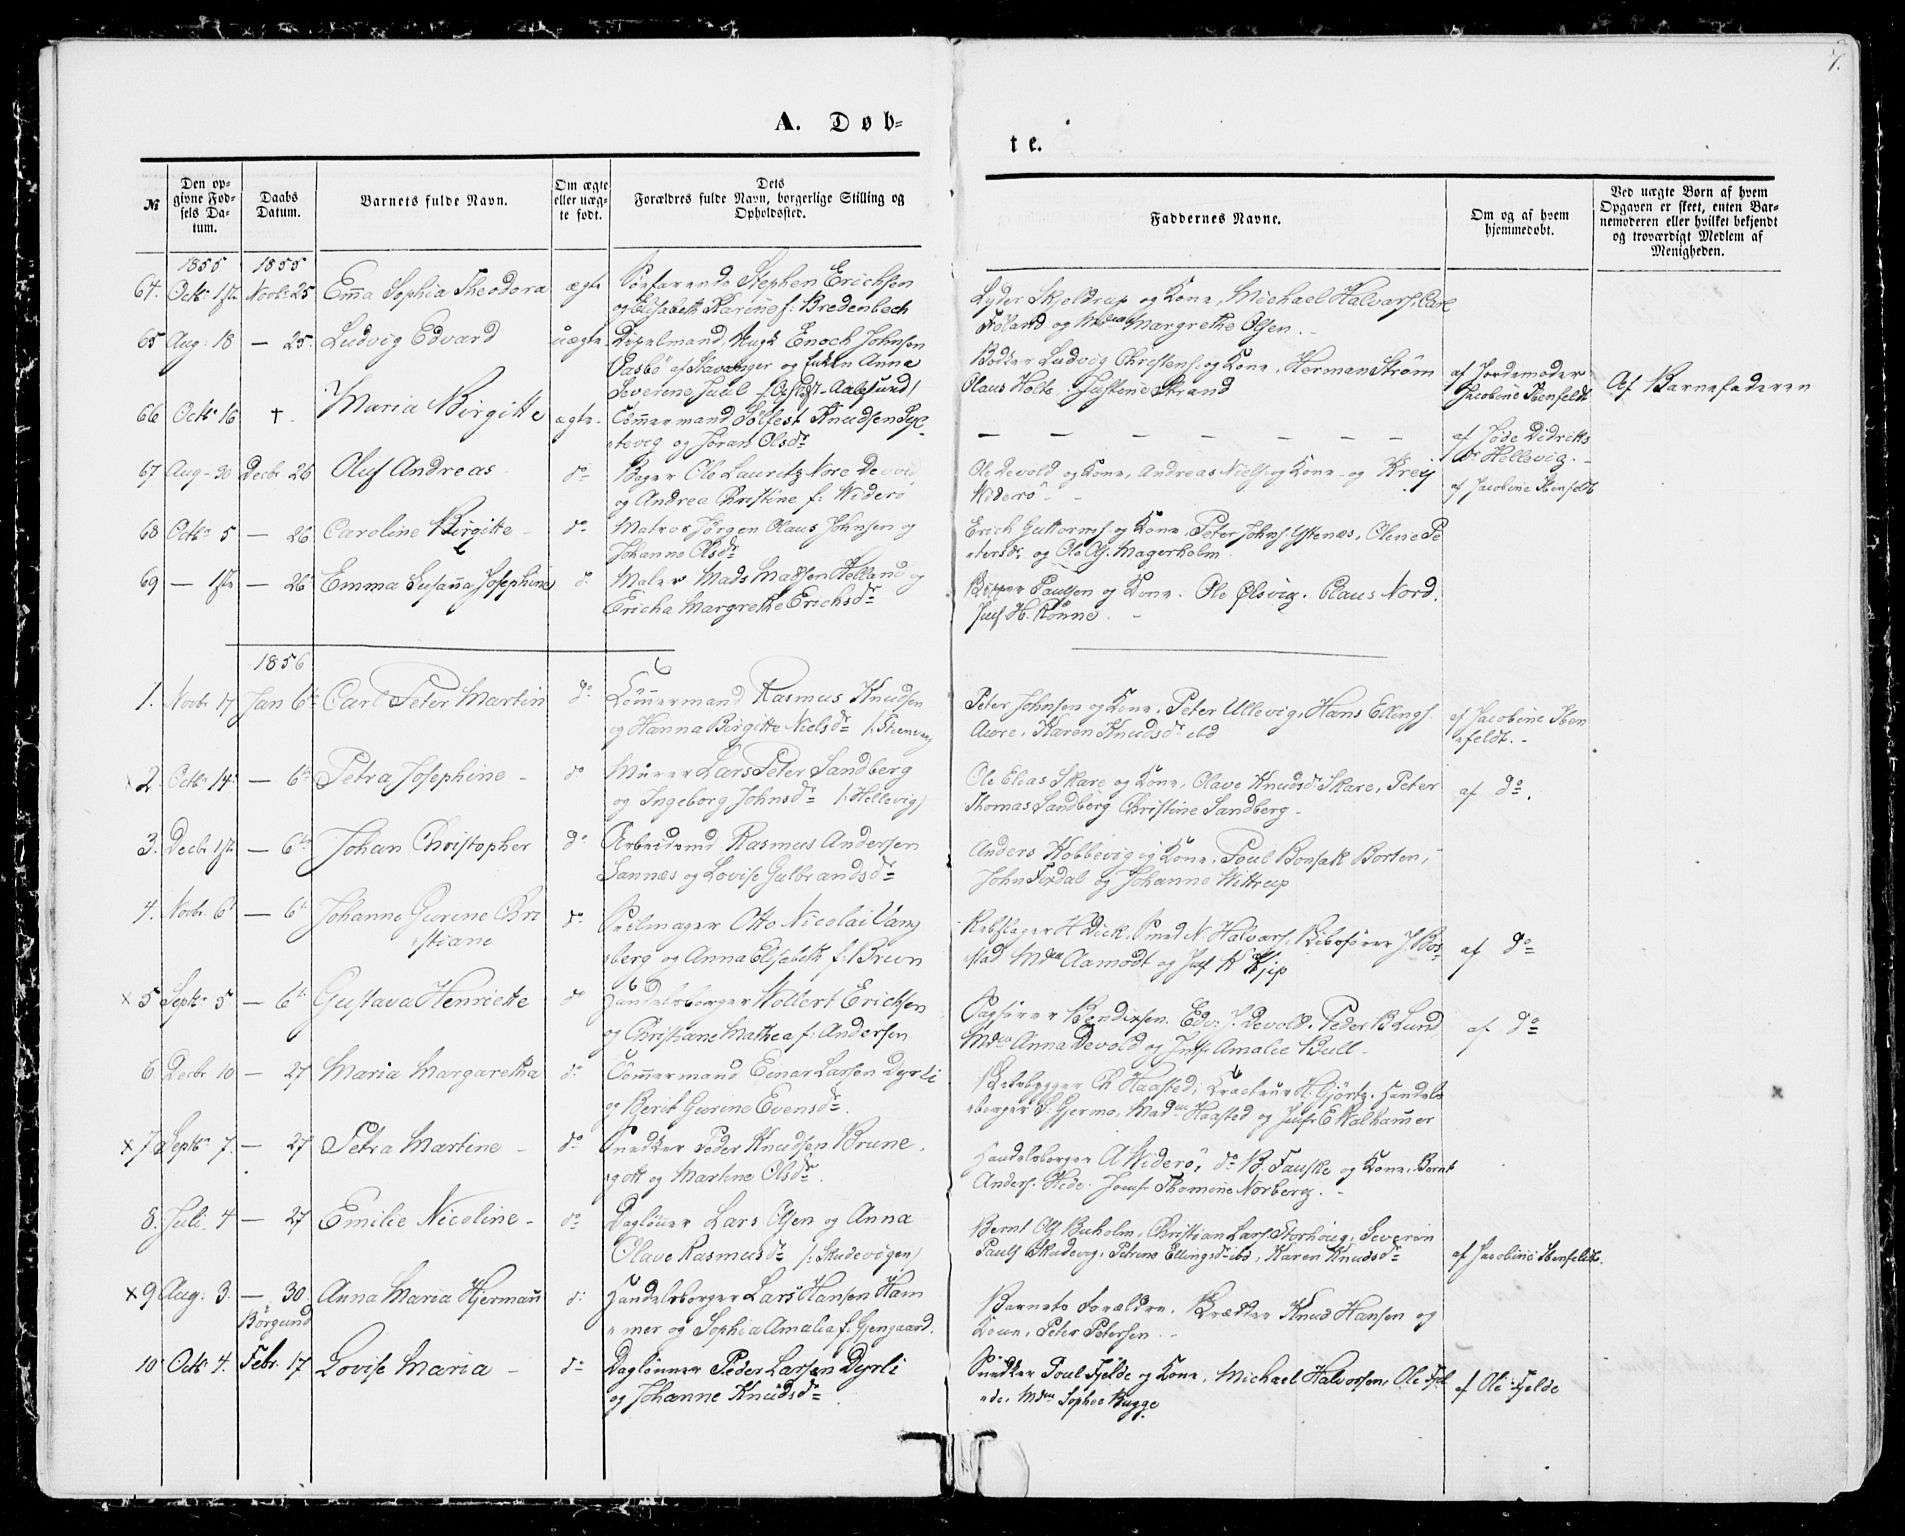 7.
A. Døb-
te.
№
Den opgivne Fødsels Datum.
Daabs Datum.
Barnets fulde Navn.
Om ægte eller uægte født.
Dets Forældres fulde Navn, borgerlige Stilling og Opholdssted.
Faddernes Navne.
Om og af hvem hjemmedøbt.
Ved uægte Børn af hvem Opgaven er skeet, enten Barnemoderen eller hvilket bekjendt og troværdigt Medlem af Menigheden.
1855 1855
64. Octbr 1ste Novbr 25 Emma Sophia Theodora ægte Søefarende Stephen Erichsen
og Elisabeth Karine f: Bredenbech
Lyder Skjeldrup og Kone, Michael Halvars, Carl
Froland og Margrethe Olsen.
65 Aug: 18 — 25. Ludvig Edvard uægte Enoch Johnsen
Pasbø af Stavanger og Anna
Severine Juul Aalesund)
Ludvig Christens: og Kone, Herman Strøm
Olaus Holte, Justine Strand
af Jordemoder
Jacobine Ibenfeldt
Af Barnefaderen
66 Octbr 16 †. Maria Birgitte ægte. Tømmermand Solfest Knudsen
og Jøran Olsdr
— — — — — — —
af Didriks
Hellevig.
67 Aug. 30 Decbr 26 Oluf Andreas do Bager Ole Lauritz Nore Devold
og Andrea Christine f: Widerø
Ole Devold og Kone, Andreas Niels: og Kone og
Widerø
af Jacobine Ibenfeldt
68 Octbr 5 — 26 Caroline Birgitte do Matros Jørgen Olaus Johnsen og
Johanne Olsdr
Erich Guttorms og Kone, Peter Johns: Ystenæs, Oline Pe
tersdr og Ole Ols: Magerholm
69 — 1ste — 26 Emma Susanna Josephine do Maler Mads Madsen Helland og
Ericha Margrethe Erichsdr
Paulsen og Kone. Ole Ølsvig. Claus Nord.
Jmf H. Rønne.
1856
1. Novbr 17 Jan 6te Carl Peter Martin do Tømmermand Rasmus Knudsen
og Hanna Birgitte Nielsdr
Peter Johnsen og Kone, Peter Ullevig, Hans Ellings
Aure, Karen Knudsdr ibd
af Jacobine Iben
feldt.
2. Octbr 14. — 6te Petra Josephine do Murer Lars Peter Sandberg
og Ingeborg Johnsdr /: Hellevig)
Ole Elias Skare og Kone, Olave Knudsdr Skare, Peter
Thomas Sandberg Christine Sandberg.
af do.
3. Decbr 1ste — 6te Johan Christopher do Arbeidsmd Rasmus Andersen
Sannæs og Lovise Gulbrandsdr
Anders Kobbevig og Kone, Poul Bonsak Borten,
John Fixdal og Johanne Wittrup
4. Novbr 6t — 6t Johanne Gurine Chri
stiane do Seilmager Otto Nicolai Vang
berg og Anna Elisabeth f: Bruun
Rebslager H Dick, Smed N. Halvars,
Mdm Aamodt og Jmf
af do
× 5 Septbr 5 — 6te Gustava Henriette do Handelsborger Wollert Erichsen
og Christiane Mathea f: Andersen
Sagfører Bendixsen. Edv: J. Devold. Peder B Lund,
Mdm Anna Devold og Jmf: Amalie Bull
af do
6 Decbr 10 — 27 Maria Margaretha do Tømmermand Einar Larsen Dyrli
og Berit Gurine Evensdr.
Haasted, H. Gjørtz. Handels
borger S. Gjermo, Madm Haasted og Jmfr E Walhammer
× 7 Septbr 7. — 27 Petra Martine do Snedker Peder Knudsen Brune
gott og Martine Olsdr.
Handelsborger A Widerø, do B. Fauske og Kone, Bernt
Anders: Hide. Jomf: Thomine Norberg.
8. Juli 4 — 27 Emilie Nicoline do Dagløner Lars Olsen og Anna
Olave Rasmusdr /: Skudevigen)
Bernt Ols Buholm, Christian Lars: Storhoug, Severin
Pauls Skudevig, Petrine Ellingsdr ibd, Karen Knudsdr
af Jacobine Ibenfeldt.
× 9 Aug: 3. — 30. Anna Maria Hjermann do Handelsborger Lars Hansen Ham
i
Borgund
mer og Sophia Amalia f: Gjengaard.
Barnets Forældre. Knud Hansen og
Kone, Peter Petersen.
10 Octbr 4. Febr. 17 Lovise Maria do Dagløner Peder Larsen Dyrli
og Johanne Knudsdr.
Snedker Poul Fjelde og Kone, Michael Halvorsen, Ole Fjel
de, Mdm Sophie Bugge
af Ole Fjelde